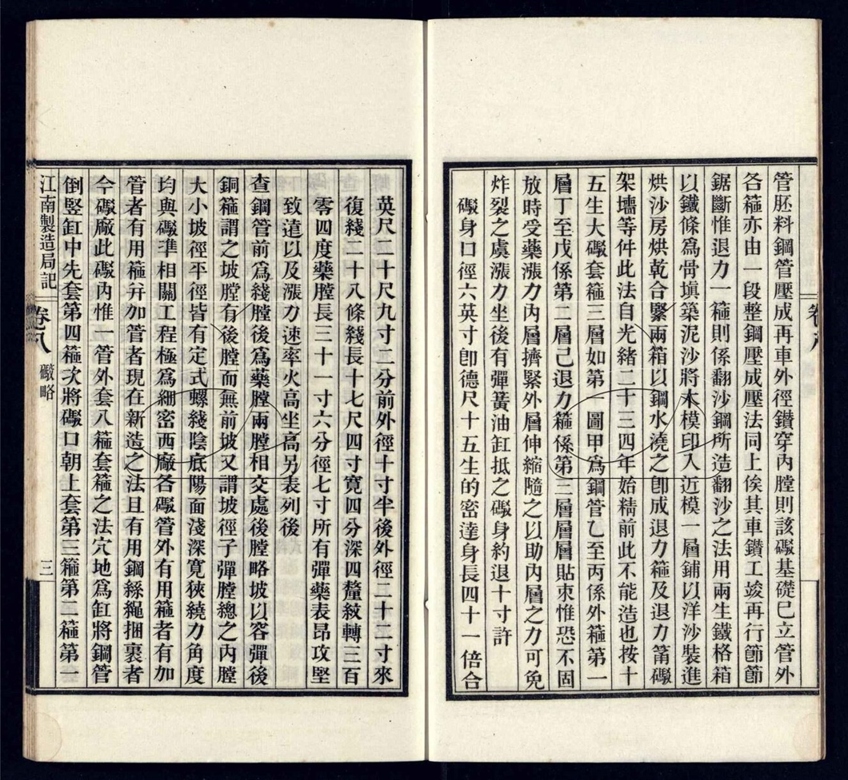 管胚料鋼管壓成再車外徑鑽穿內膛則該礮基礎已立管外
各箍亦由一段整鋼壓成壓法同上俟其車鑽工竣再行節節
鋸斷惟退力一箍則係翻沙鋼所造翻沙之法用兩生鐵格箱
以鐵條爲骨塡築泥沙將木模印入近模一層鋪以洋沙裝進
烘沙房烘乾合緊兩箱以鋼水澆之卽成退力箍及退力筩礮
架墻等件此法自光緒二十三四年始精前此不能造也按十
五生大礮套箍三層如第一圖甲爲鋼管乙至丙係外箍第一
層丁至戊係第二層己退力箍係第三層層層貼束惟恐不固
放時受藥漲力內層擠緊外層伸縮隨之以助內層之力可免
炸裂之虞漲力坐後有彈簧油缸抵之礮身約退十寸許
礮身口徑六英寸卽德尺十五生的密達身長四十一倍合
卷八
英尺二十尺九寸二分前外徑十寸半後外徑二十二寸來
復綫二十八條綫長十七尺四寸寬四分深四釐紋轉三百
零四度藥膛長三十一寸六分徑七寸所有彈藥表昂攻堅
致遠以及漲力速率火高坐高另表列後
查鋼管前爲綫膛後爲藥膛兩膛相交處後膛略坡以容彈後
銅箍謂之坡膛有後膛而無前坡又謂坡徑子彈膛總之內膛
大小坡徑平徑皆有定式螺綫陰底陽面淺深寬狹繞力角度
均與礮準相關工程極爲細密西廠各礮管外有用箍者有加
管者有用箍幷加管者現在新造之法且有用鋼絲繩捆裹者
今礮廠此礮內惟一管外套八箍套箍之法穴地爲缸將鋼管
倒豎缸中先套第四箍次將礮口朝上套第三箍第二箍第一
江南製造局記
卷八
礮略
三